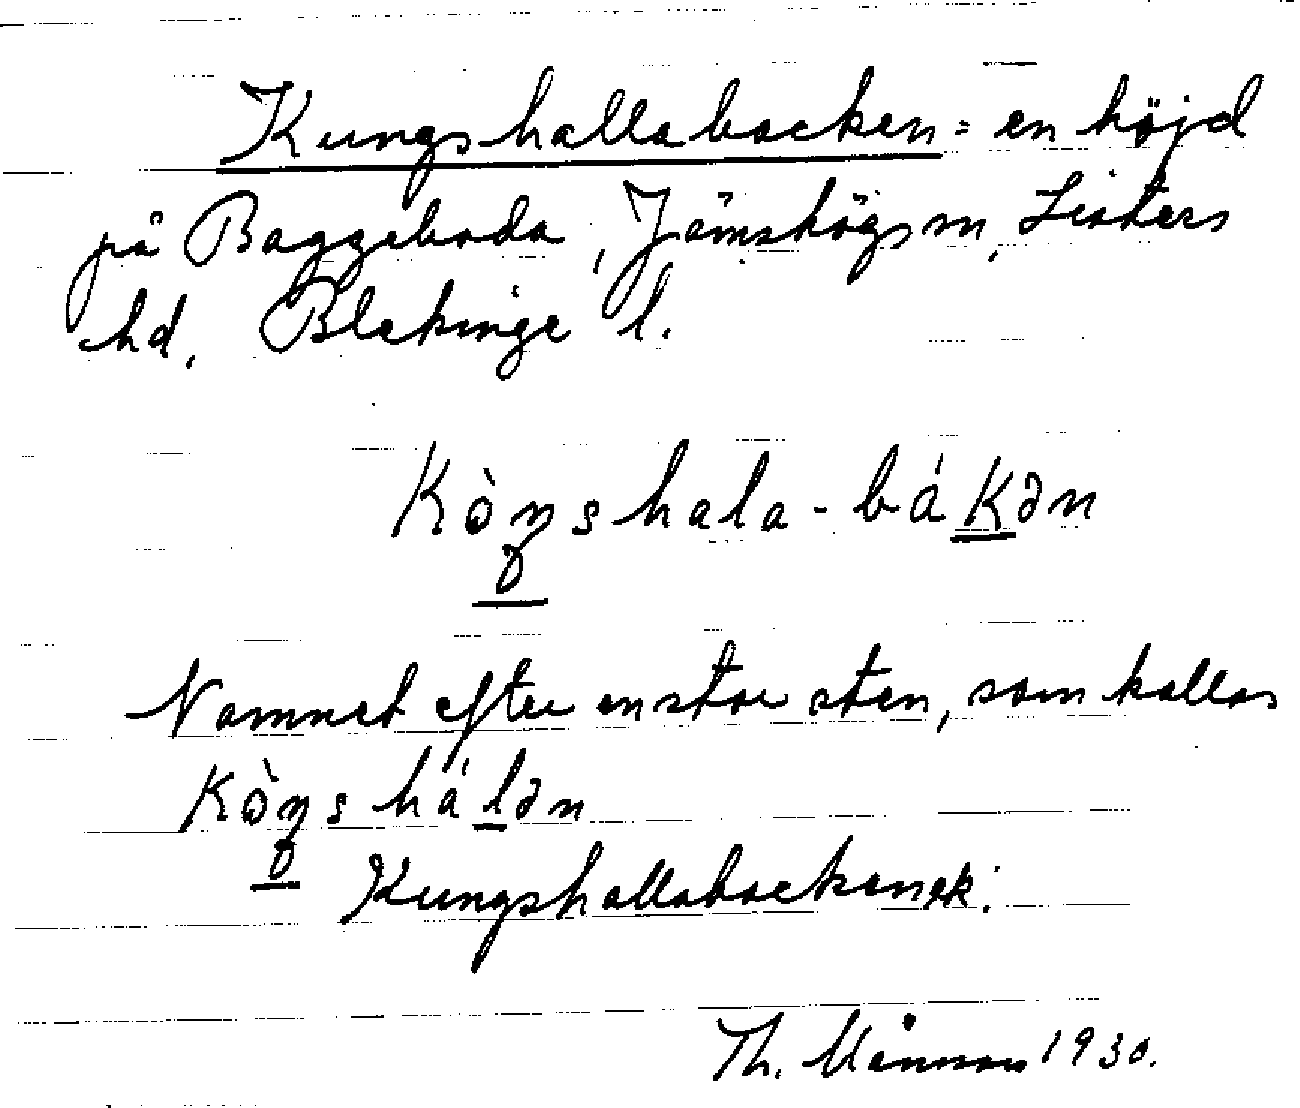 Kungshallabacken = en höjd
på Baggeboda, Jämshögs sn, Listers
hd. Blekinge l.
Kòŋshala-bákən
Namnet efter en stor sten, som kallas
Kòŋshálən
Kungshallabackens k.
Th. Månsson 1930.